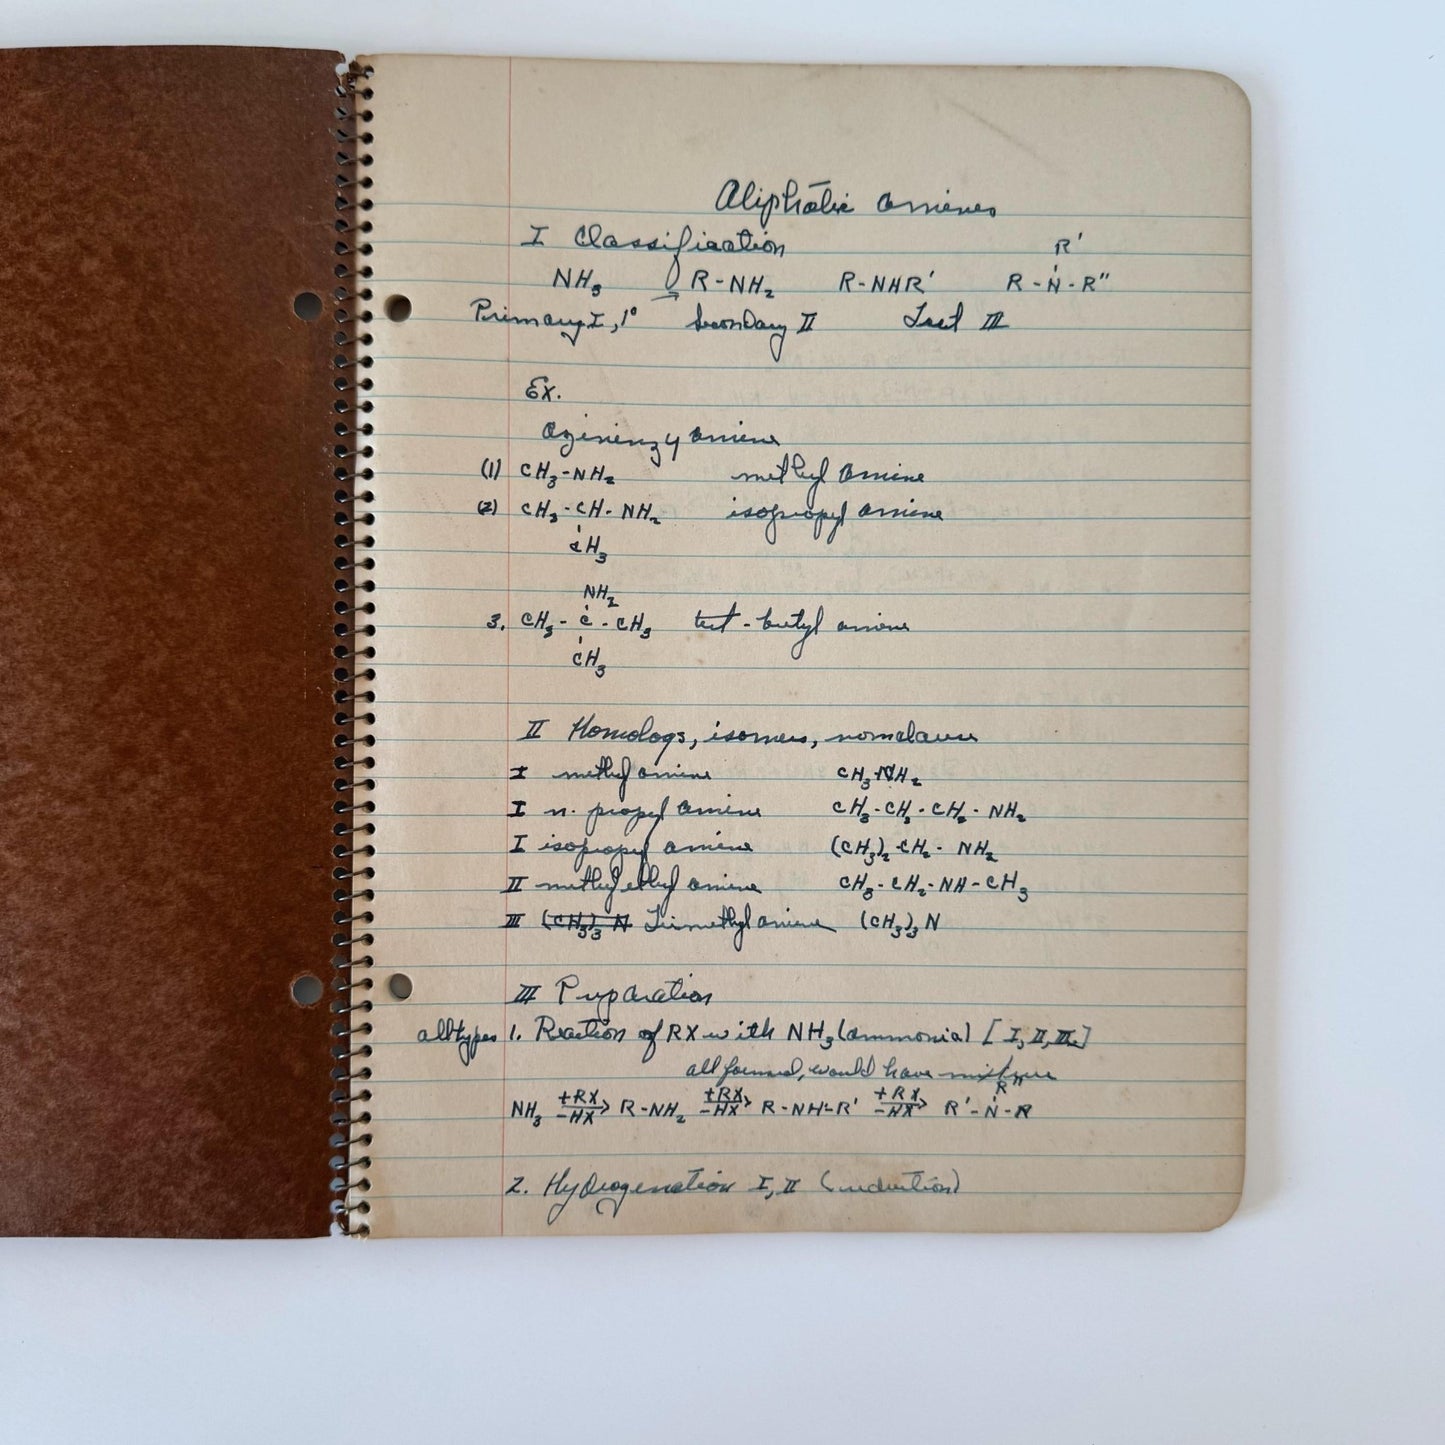 Aliphatic amines
I Classification
R'
NH₃ R-NH₂ R-NHR' R-N-R"
Primary I, 1° Secondary II Tert III
Ex.
amine
(1) CH₃-NH₂ methyl amine
(2) CH₃-CH-NH₂ isopropyl amine
CH₃
NH₂
3. CH₃-C-CH₃ tert-butyl amine
CH₃
II Homologs, isomers,
I methyl amine CH₃-NH₂
I n. propyl amine CH₃-CH₂-CH₂-NH₂
I isopropyl amine (CH₃)₂-CH₂-NH₂
II methyl ethyl amine CH₃-CH₂-NH-CH₃
III (CH₃)₃N Trimethyl amine (CH₃)₃N
III Preparation
all types 1. Reaction of RX with NH₃ (ammonia) [I, II, III]
all formed, would have mixture
R"
NH₃ +RX/-HX> R-NH₂ +RX/-HX> R-NH-R' +RX/-HX> R'-N-R
2. Hydrogenation I, II (reduction)